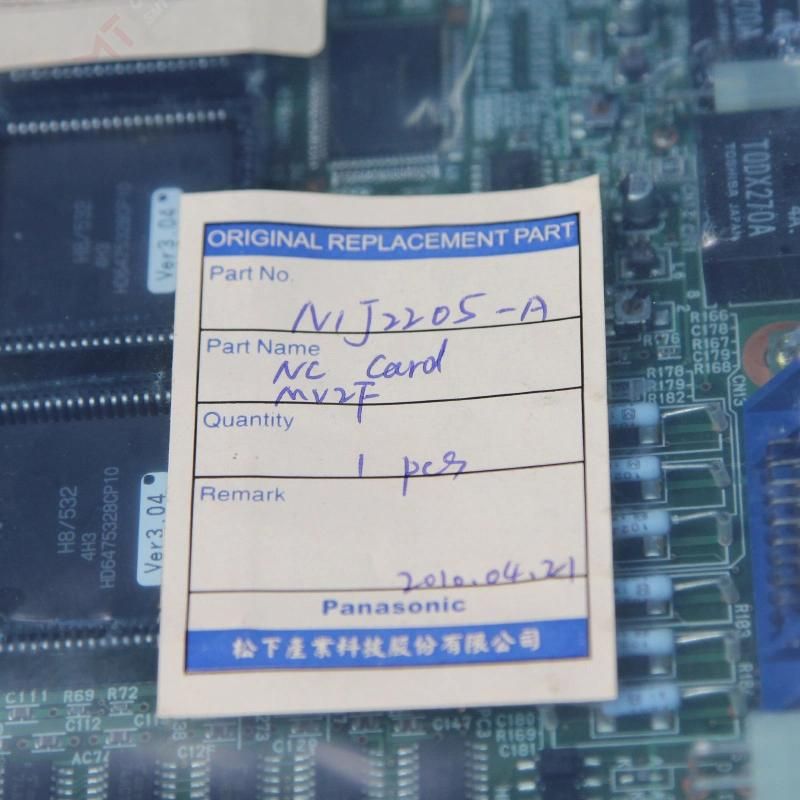 70A
H8/532
4H3
HD6475328CP10
Ver3.04
TODX270A
TOSHIBA JAPAN
ORIGINAL REPLACEMENT PART
Part No.
N1J2205-A
Part Name
NC Card
MV2F
Quantity
1 pcs
Remark
2010.04.21
Panasonic
松下產業科技股份有限公司
R166
C178
R167
C179
R168
R176
R178
R179
R182
CN13
H8/532
4H3
HD6475328CP10
Ver3.04
R183
C111 R69 R72
C112
AC74
C147
C180
R169
C181